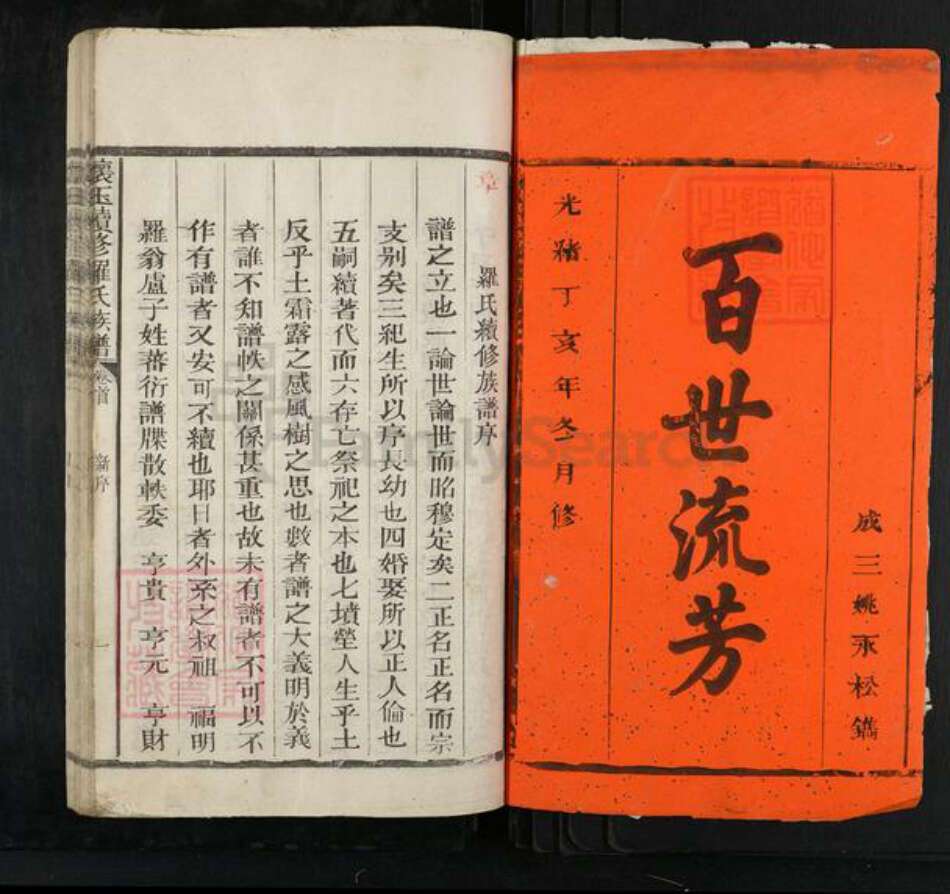 成三姚永松鐫
百世流芳
光緒丁亥年冬月修
羅氏續修族譜序
譜之立也一論世論世而昭穆定矣二正名正名而宗
支别矣三紀生所以序長幼也四婚娶所以正人倫也
五嗣續著代而六存亡祭祀之本也七墳塋人生乎土
反乎土霜露之感風樹之思也數者譜之大義明於義
者誰不知譜帙之關係甚重也故未有譜者不可以不
作有譜者又安可不續也耶日者外系之叔祖 福明
羅翁盧子姓蕃衍譜牒散軼委 亨貴 亨元 亨財
懷玉續修羅氏族譜 卷首 新序 一
FamilySearch